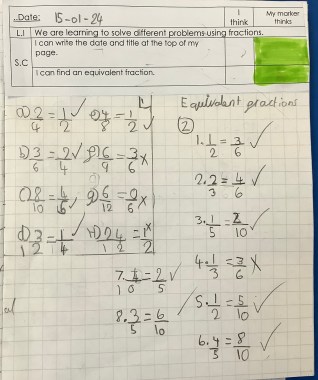 Date: 15-01-24
I think
My marker thinks
L.I We are learning to solve different problems using fractions.
S.C
I can write the date and title at the top of my page.
I can find an equivalent fraction.
Equivalent fractions
a) 2/4 = 1/2 ✓
e) 4/8 = 1/2 ✓
b) 3/6 = 2/4 ✓
f) 6/9 = 3/6 x
c) 8/10 = 4/5 ✓
g) 6/12 = 0/6 x
d) 3/12 = 1/4 ✓
h) 24/12 = 1/2 x
7. 4/10 = 2/5 ✓
8. 3/5 = 6/10 /
2
1. 1/2 = 3/6 ✓
2. 2/3 = 4/6 ✓
3. 1/5 = 2/10 ✓
4. 1/3 = 3/6 X
5. 1/2 = 5/10 ✓
6. 4/5 = 8/10 ✓